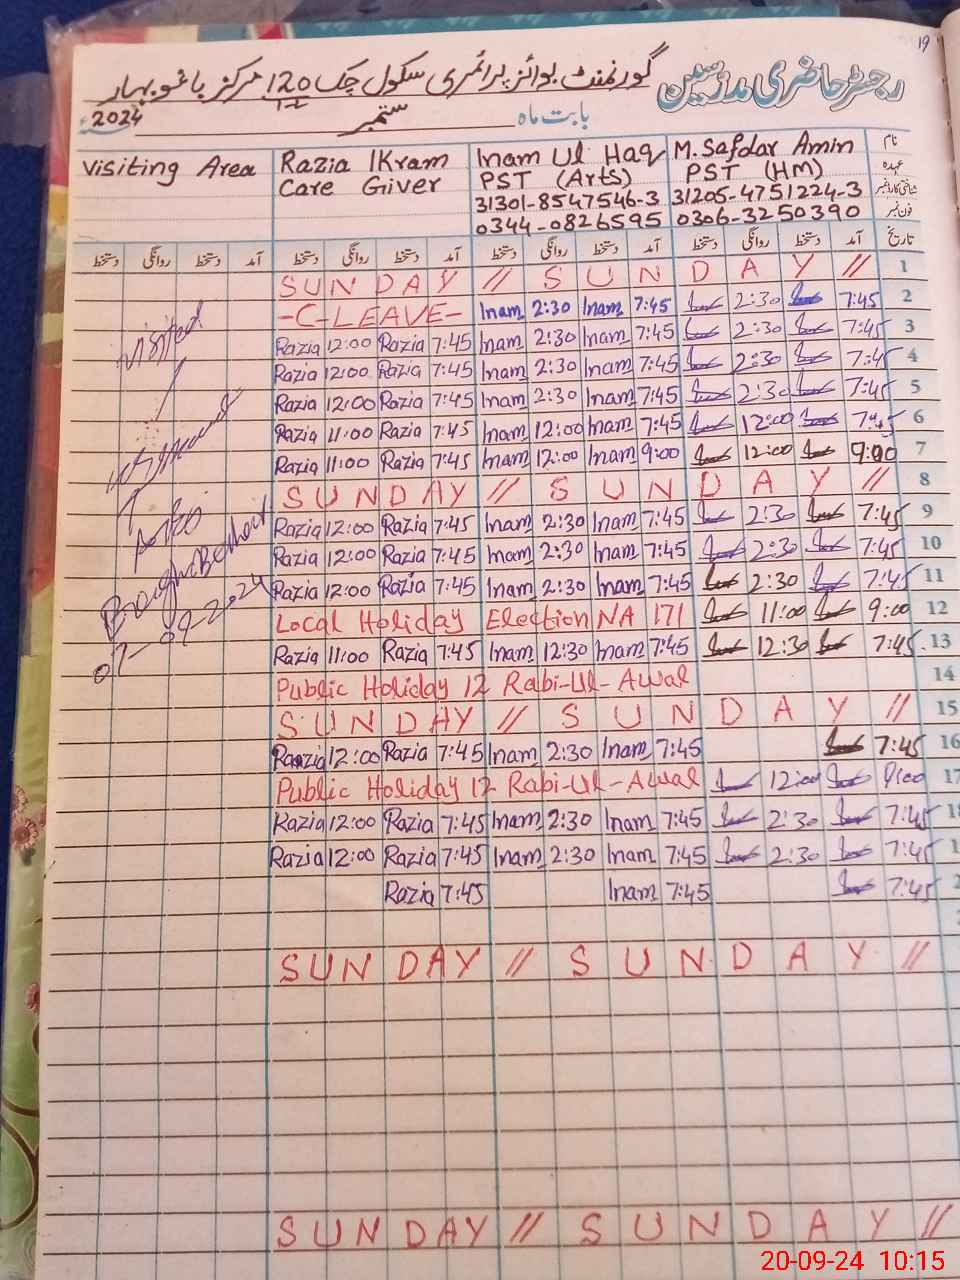 19
رجسٹر حاضری مدرسین گورنمنٹ بوائز پرائمری سکول چک 120 مرکز باغ و بہار
12
بابت ماہ ستمبر 2024
Visiting Area Razia Ikram Inam Ul Haq M. Safdar Amin نام
Care Giver PST (Arts) PST (HM) عہدہ
31301-8547546-3 31205-4751224-3 شناختی کارڈ نمبر
0344-0826595 0306-3250390 فون نمبر
دستخط روانگی دستخط آمد دستخط روانگی دستخط آمد دستخط روانگی دستخط آمد دستخط روانگی دستخط آمد تاریخ
SUNDAY // SUNDAY // 1
-C-LEAVE- Inam 2:30 Inam 7:45 2:30 7:45 2
Razia 12:00 Razia 7:45 Inam 2:30 Inam 7:45 2:30 7:45 3
Razia 12:00 Razia 7:45 Inam 2:30 Inam 7:45 2:30 7:45 4
Razia 12:00 Razia 7:45 Inam 2:30 Inam 7:45 2:30 7:45 5
Razia 11:00 Razia 7:45 Inam 12:00 Inam 7:45 12:00 7:45 6
Razia 11:00 Razia 7:45 Inam 12:00 Inam 9:00 12:00 9:00 7
SUNDAY // SUNDAY // 8
Razia 12:00 Razia 7:45 Inam 2:30 Inam 7:45 2:30 7:45 9
Razia 12:00 Razia 7:45 Inam 2:30 Inam 7:45 2:30 7:45 10
Razia 12:00 Razia 7:45 Inam 2:30 Inam 7:45 2:30 7:45 11
Local Holiday Election NA 171 11:00 9:00 12
Razia 11:00 Razia 7:45 Inam 12:30 Inam 7:45 12:30 7:45 13
Public Holiday 12 Rabi-Ul-Awal 14
SUNDAY // SUNDAY // 15
Razia 12:00 Razia 7:45 Inam 2:30 Inam 7:45 7:45 16
Public Holiday 12 Rabi-Ul-Awal 12:00 9:00 17
Razia 12:00 Razia 7:45 Inam 2:30 Inam 7:45 2:30 7:45 18
Razia 12:00 Razia 7:45 Inam 2:30 Inam 7:45 2:30 7:45 1
Razia 7:45 Inam 7:45 7:45 2
SUNDAY // SUNDAY //
SUNDAY // SUNDAY //
visited
07-09-2024
20-09-24 10:15